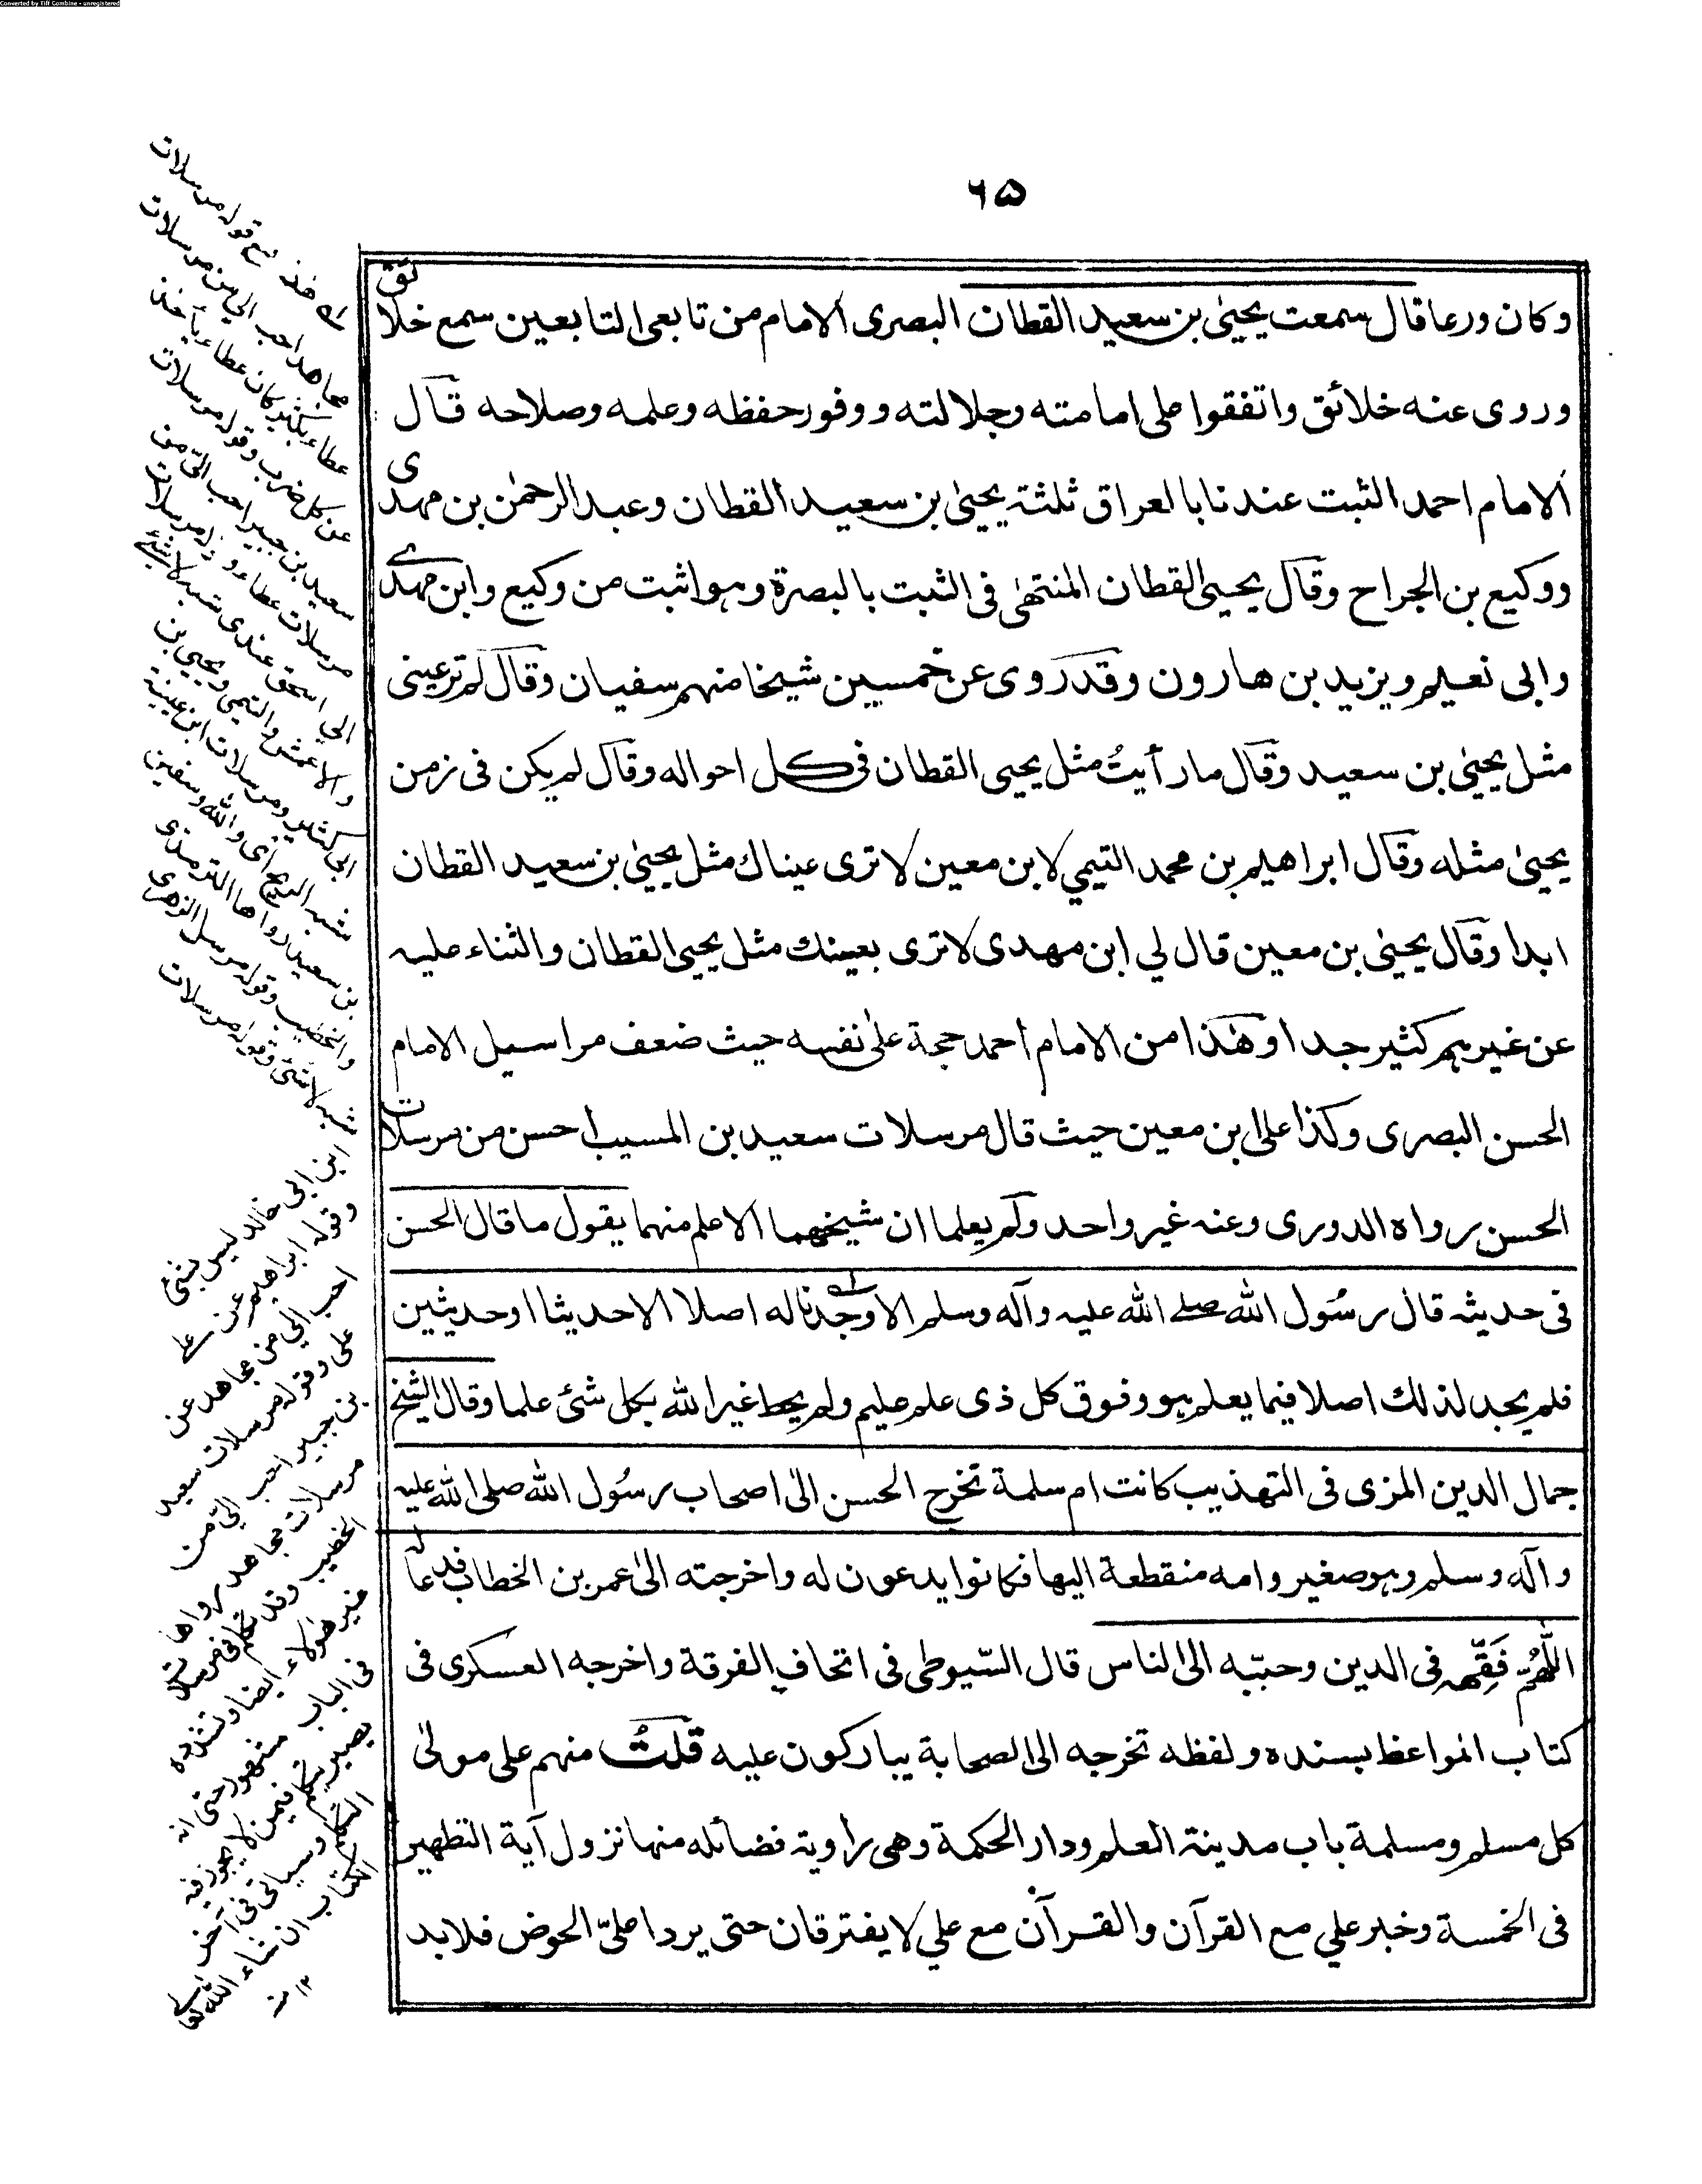 Converted by Tiff Combine - unregistered
٦٥
وكان ورعا قال سمعت يحيىٰ بن سعيد القطان البصرى الامام من تابعى التابعين سمع خلائق
وروى عنه خلائق واتفقوا على امامته وجلالته ووفور حفظه وعلمه وصلاحه قال
الامام احمد الثبت عندنا بالعراق ثلثة يحيىٰ بن سعيد القطان وعبد الرحمٰن بن مهدى
ووكيع بن الجراح وقال يحيى القطان المنتهىٰ فى الثبت بالبصرة وهو اثبت من وكيع وابن مهدى
وابى نعيم ويزيد بن هارون وقد روى عن خمسين شيخا منهم سفيان وقال لم تر عينى
مثل يحيىٰ بن سعيد وقال ما رأيتُ مثل يحيى القطان فى كل احواله وقال لم يكن فى زمن
يحيىٰ مثله وقال ابراهيم بن محمد التيمي لابن معين لا ترى عيناك مثل يحيىٰ بن سعيد القطان
ابدا وقال يحيىٰ بن معين قال لي ابن مهدى لا ترى بعينك مثل يحيى القطان والثناء عليه
عن غيرهم كثير جدا وهٰذا من الامام احمد حجة علىٰ نفسه حيث ضعف مراسيل الامام
الحسن البصرى وكذا على ابن معين حيث قال مرسلات سعيد بن المسيب احسن من مرسلات
الحسن رواه الدورى وعنه غير واحد ولم يعلما ان شيخهما الاعلم منهما يقول ما قال الحسن
فى حديثه قال رسُول الله صلے الله عليه وآله وسلم الا وجدنا له اصلا الا حديثا او حديثين
فلم يجد لذلك اصلا فيما يعلم هو وفوق كل ذى علم عليم ولم يحط غير الله بكل شئ علما وقال الشيخ
جمال الدين المزى فى التهذيب كانت ام سلمة تخرج الحسن الىٰ اصحاب رسُول الله صلى الله عليه
وآله وسلم وهو صغير وامه منقطعة اليها فكانوا يدعون له واخرجته الىٰ عمر بن الخطاب فدعا له
اللّٰهُمَّ فَقِّهه فى الدين وحببّه الى الناس قال السّيوطى فى اتحاف الفرقة واخرجه العسكرى فى
كتاب المواعظ بسنده ولفظه تخرجه الى الصحابة يباركون عليه قلتُ منهم على مولىٰ
كل مسلم ومسلمة باب مدينة العلم ودار الحكمة وهى راوية فضائله منها نزول آية التطهير
فى الخمسة وخبر علي مع القرآن والقرآن مع علي لا يفترقان حتى يردا علىّ الحوض فلا بد
قوله مرسلات
مجاهد احب الي من مرسلات
عطاء بكثير كان عطاء يأخذ
عن كل ضرب وقوله مرسلات
سعيد بن جبير احب الىّ من
مرسلات عطاء و
ابى اسحق عندى شبه لا شئ
والاعمش والتيمى ويحيى بن
ابى كثير ومرسلات ابن عيينة
شبه الريح اى والله وسفين
بن سعيد رواها الترمذى
والخطيب وقوله مرسل الزهرى
شبه لا شئ وقوله مرسلات
ابن ابى خالد ليس بشئ
وقوله ابراهيم عن علے
احب الي من مجاهد عن
على وقوله مرسلات سعيد
بن جبير احب الىّ من
مرسلات مجاهد رواها
الخطيب وقد تكلم فى مرسلات
غير هؤلاء ايضا
فى الباب مشهور حتى انه
يصير يتكلم فيمن لا يجوز فيه
التكلم وسياتى فى آخر
الكتاب ان شاء الله تعالى
١٢ منه